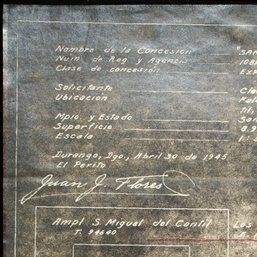 Nombre de la Concesión SAN
Num. de Reg y Agencia 108
Clase de concesión Ex
Solicitante Cle
Ubicación Pal
Mpio. y Estado San
Superficie 8.9
Escala 1:1
Durango, Dgo., Abril 30 de 1945
El Perito
Juan J. Flores
Ampl S. Miguel del Cantil Los
T. 94640